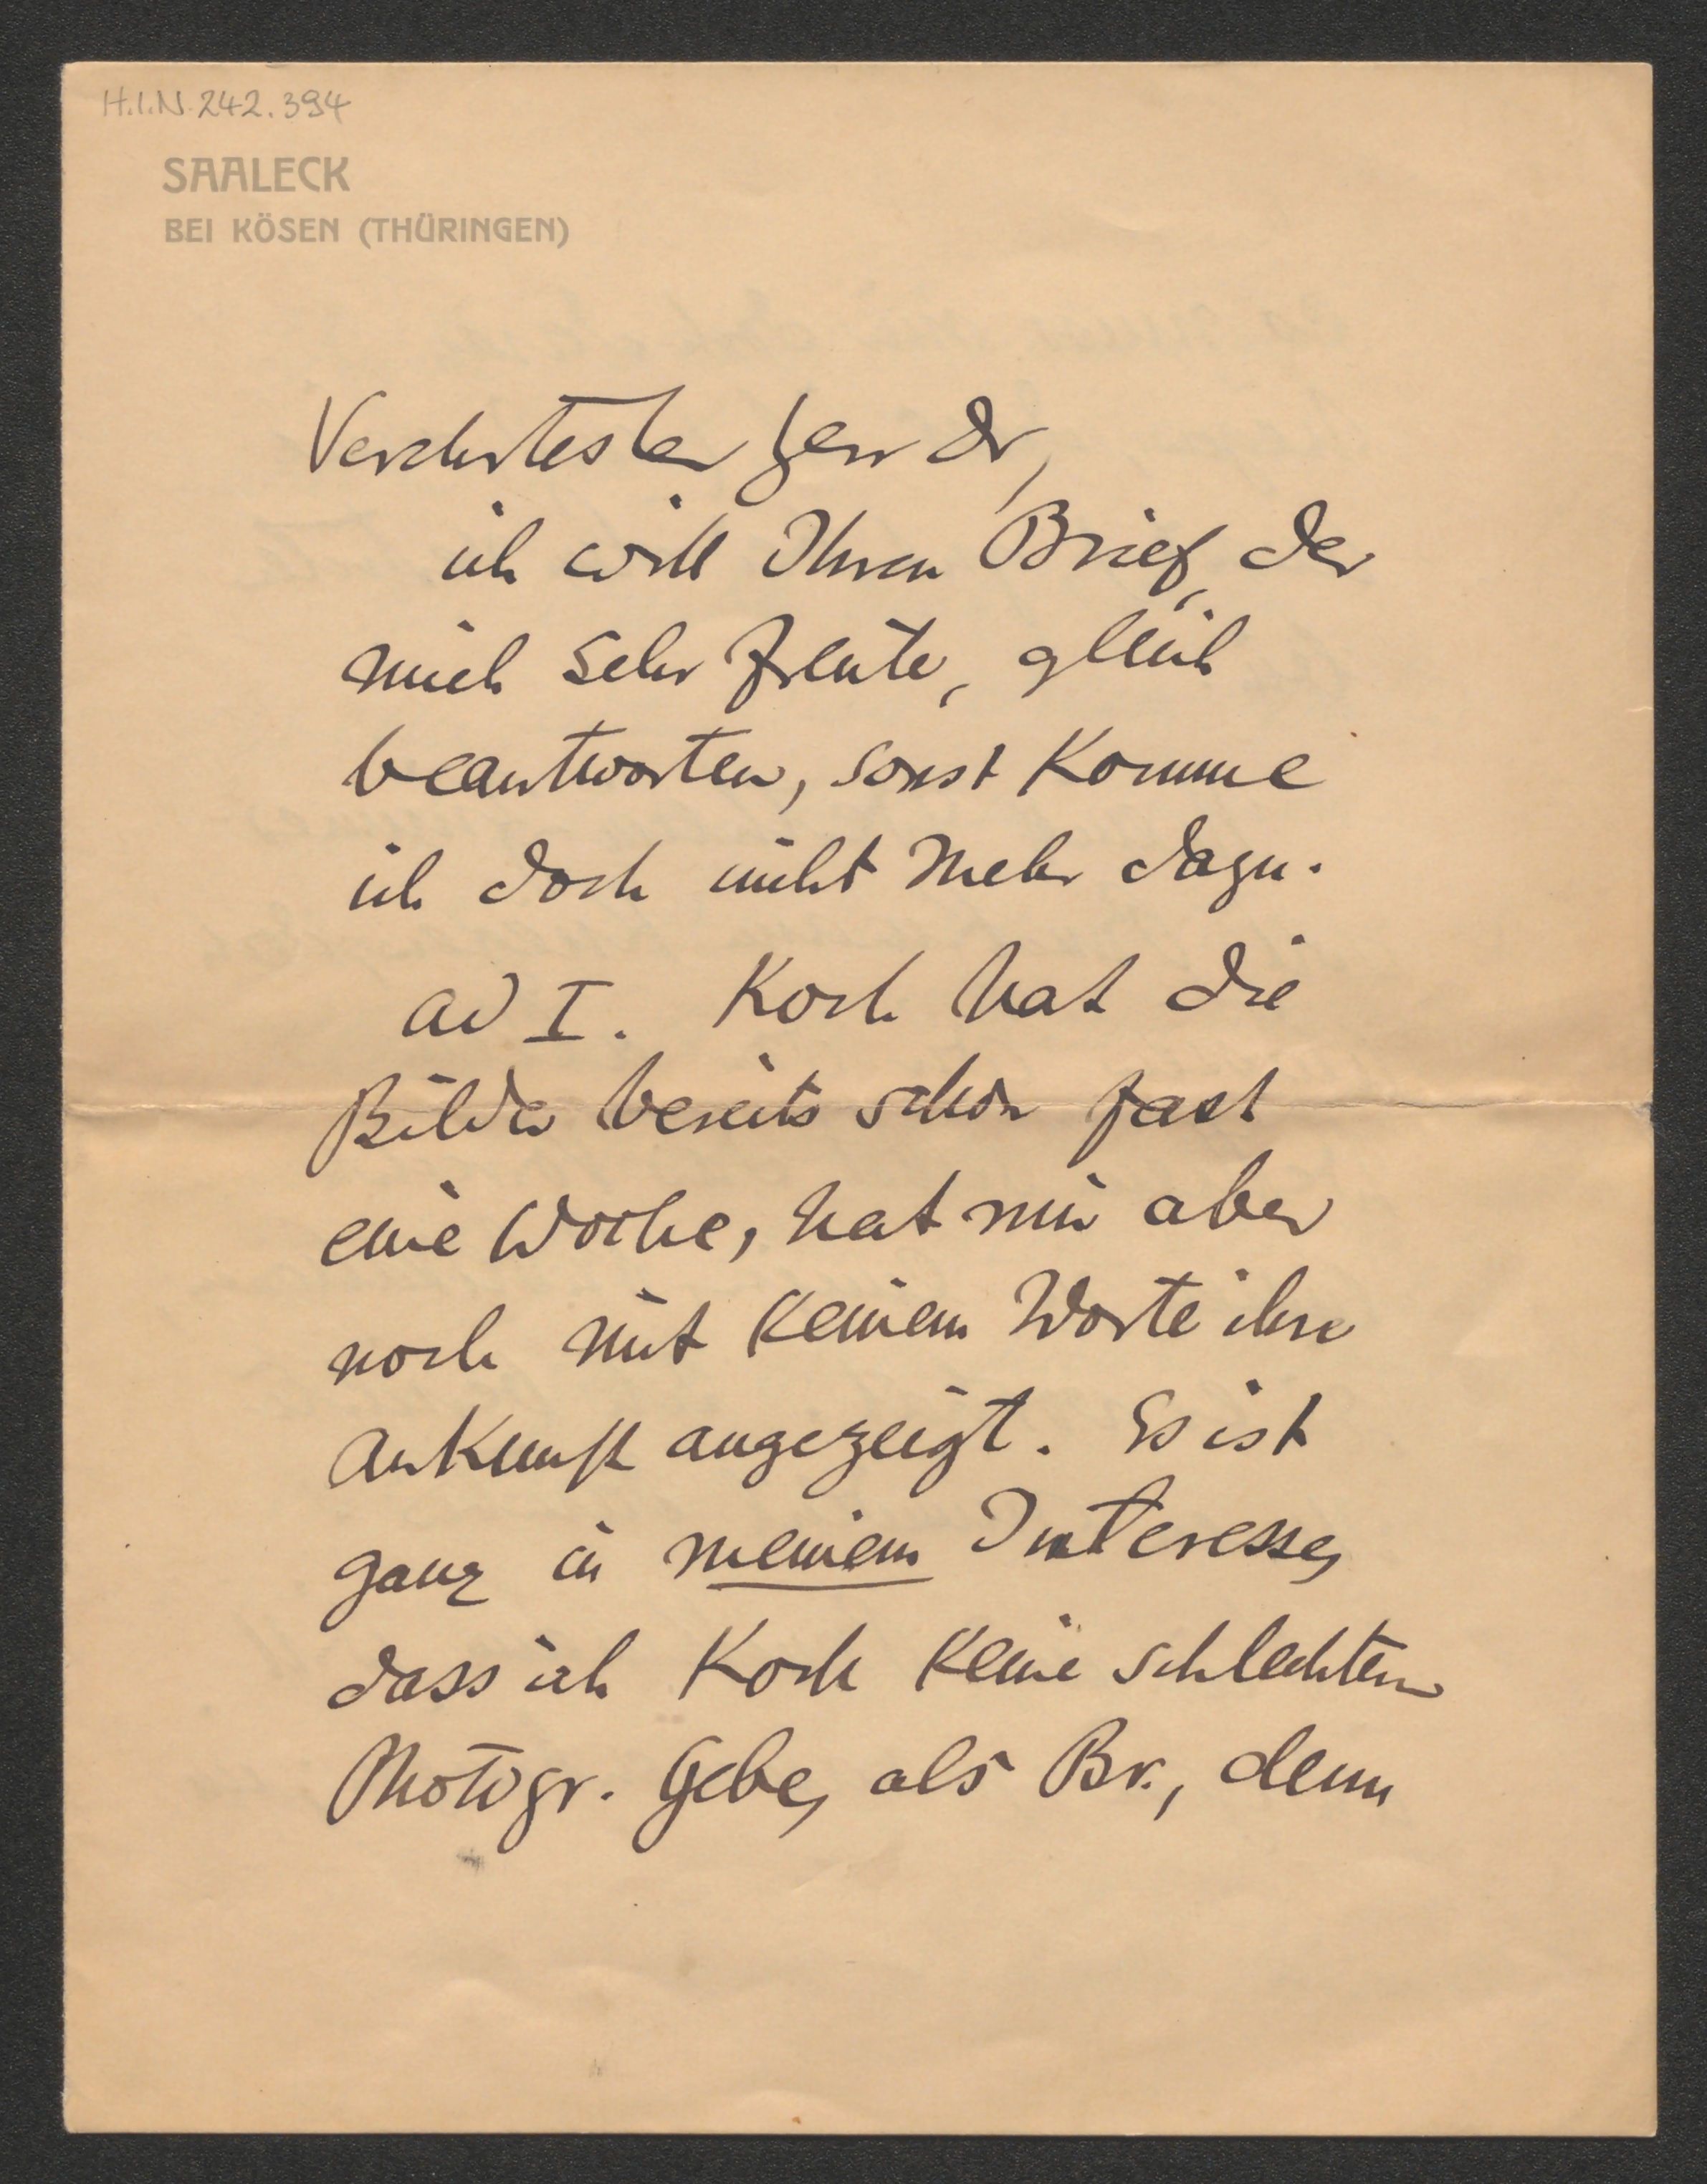 H.I.N. 242.394
SAALECK
BEI KÖSEN (THÜRINGEN)
Verehrtester Herr Dr,
ich will Ihren Brief, der
mich sehr freute, gleich
beantworten, sonst komme
ich doch nicht mehr dazu.
ad I. Koch hat die
Bilder bereits schon fast
eine Woche, hat mir aber
noch mit keinem Worte ihre
Ankunft angezeigt. Es ist
ganz in meinem Interesse,
dass ich Koch keine schlechten
Photogr. gebe, als Br., denn